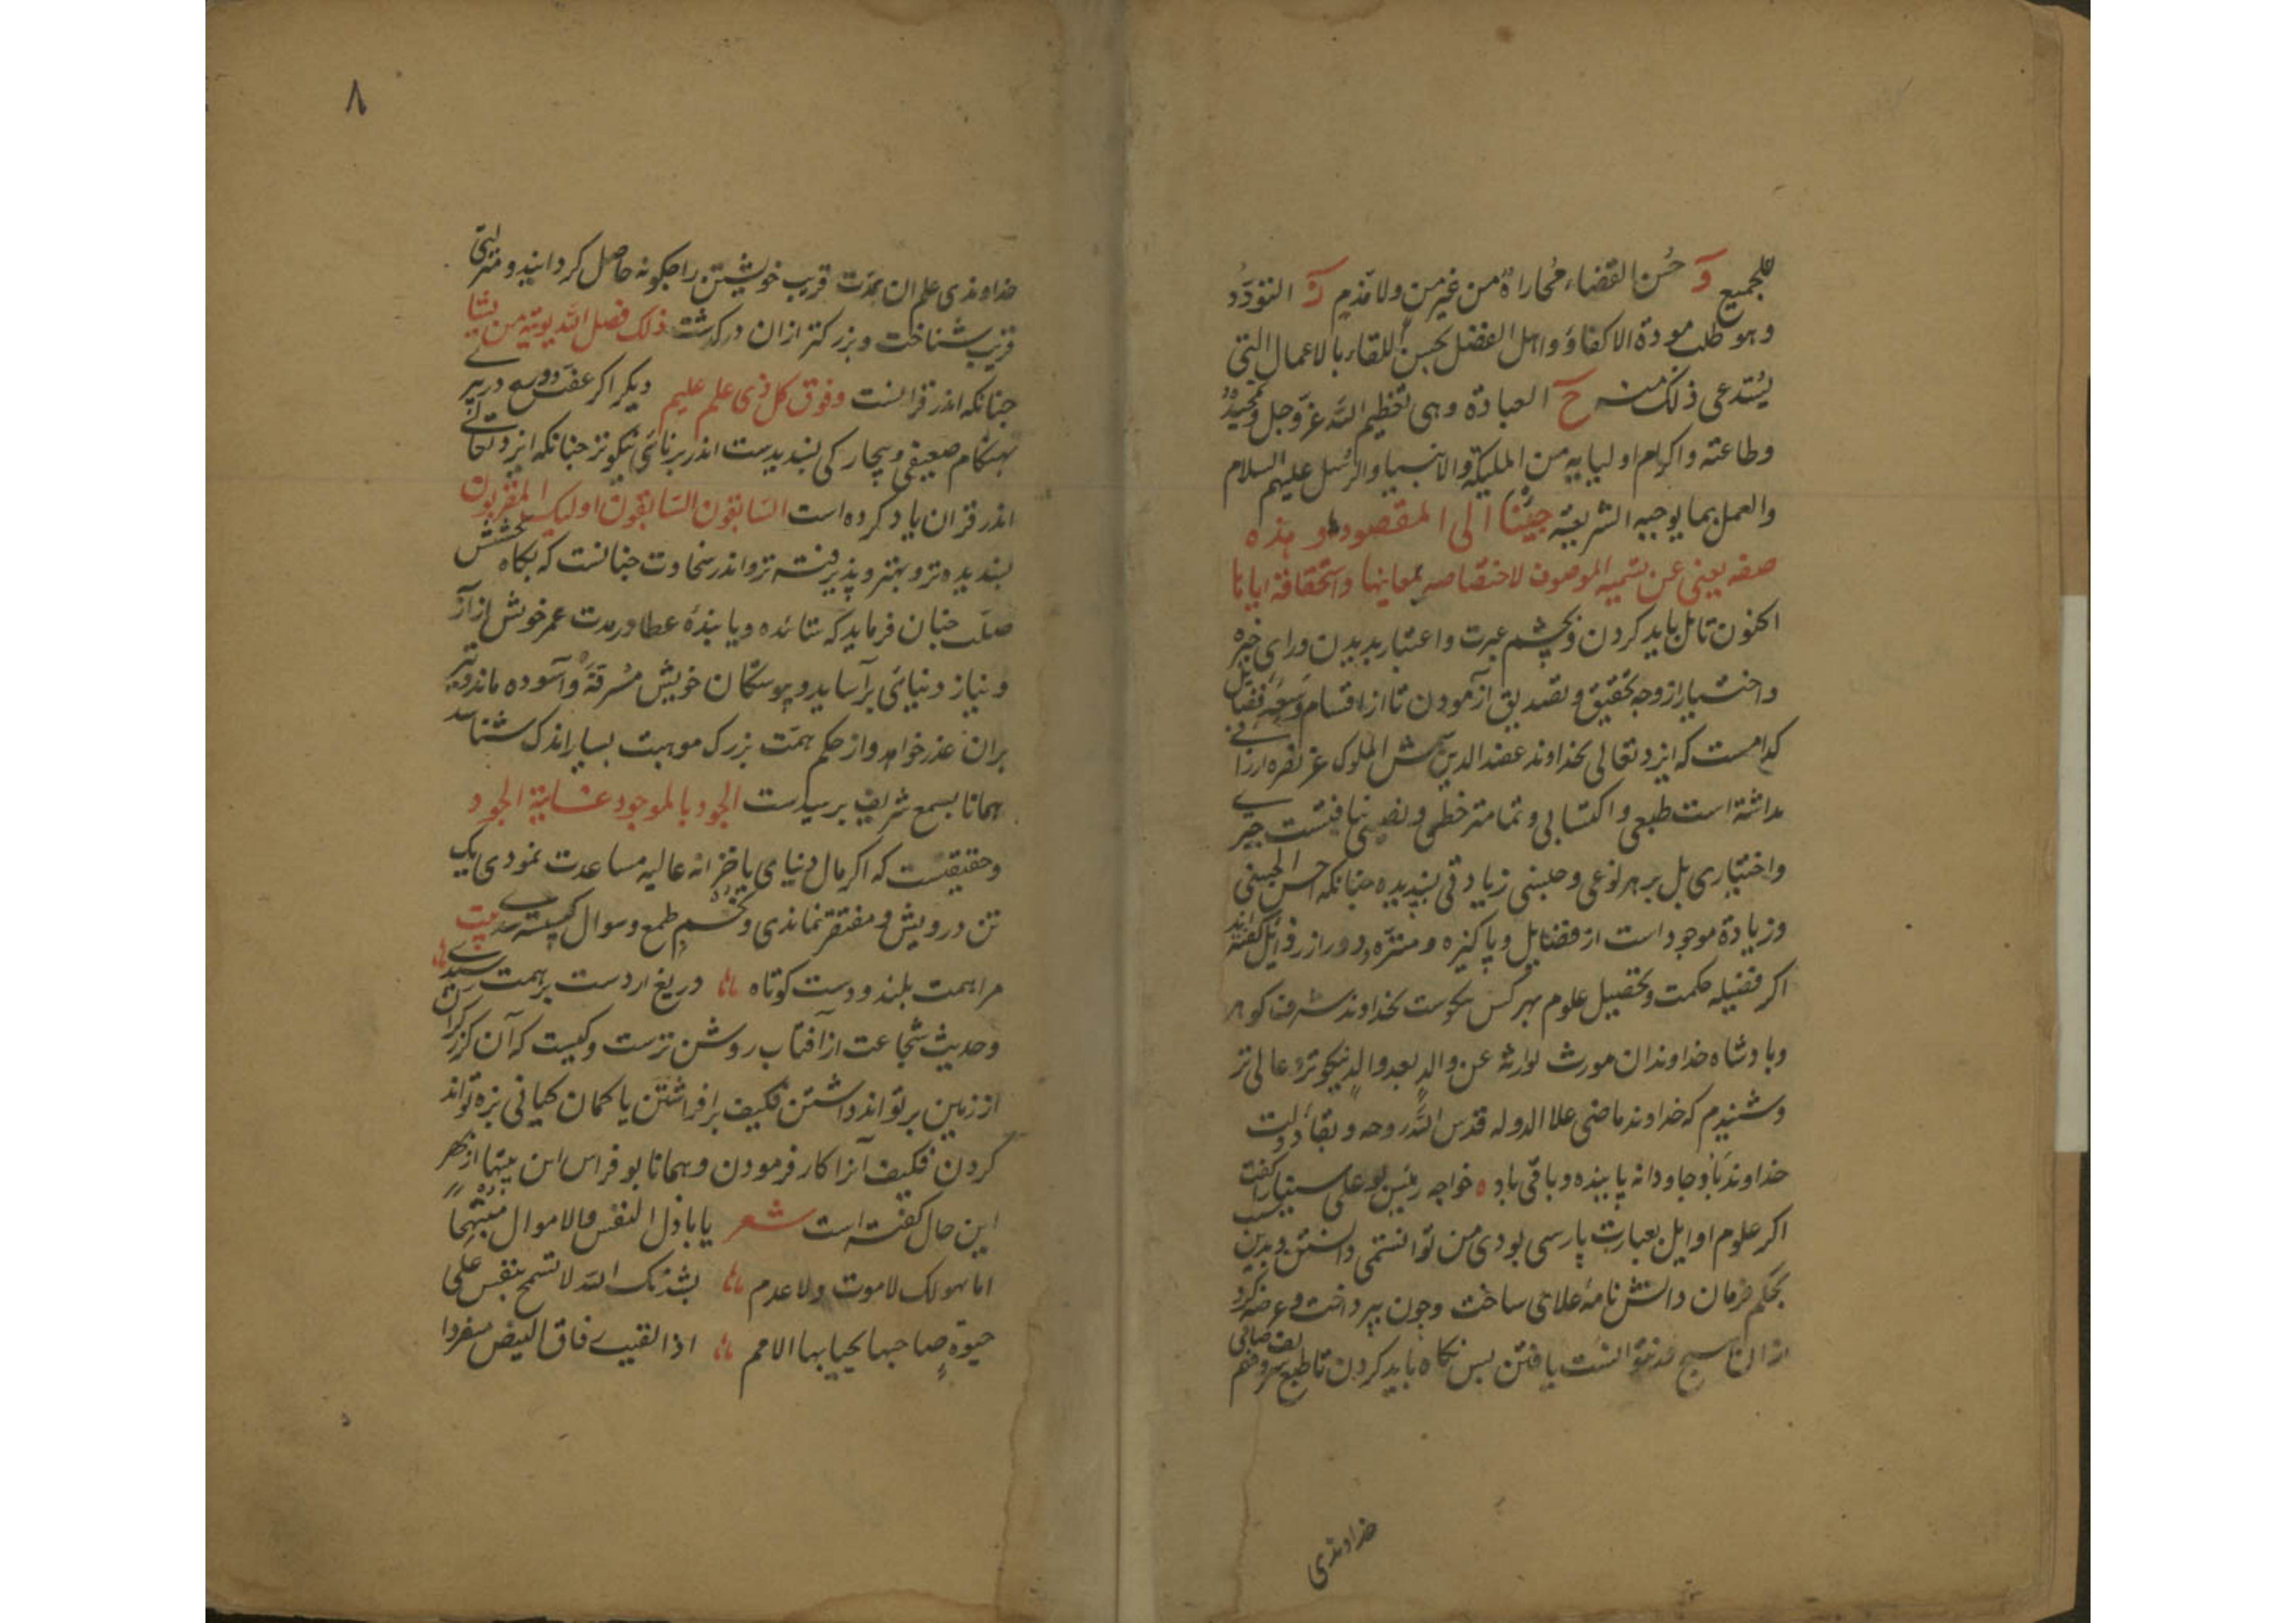 للجمیع و حُسن القضاء مُجاراةٌ من غیر منٍ ولا مذمٍ ز التودّدُ
وهو طلب مودة الاکفاؤ واهل الفضل بحسن اللقاء بالاعمال التی
یُستدعی ذلک منه ح العبادة وهی تعظیم الله عزّ وجل وتمجیدهُ
وطاعته واکرام اولیایه من الملیکة والانبیا والرُسل علیهم السلام
والعمل بما یوجبه الشریعة جیُنا الی المقصود و هذه
صفه یعنی عن تسمیه الموصوف لاختصاصه بمعاینها واستحقاقة ایاها
اکنون تامل باید کردن وبچشم عبرت واعتبار بدیدن ورای خبره
واختیار از وجه تحقیق وتصدیق آزمودن تا از اقسام فضایل
کدامست که ایزد تعالی خداوند عضد الدین شمس الملوک عز نصره ارزانی
داشته است طبعی واکتسابی وتمامتر حظی ونصیبی نیافتست جبری
واختیاری بل بر هر نوعی وجنسی زیادتی پسندیده جنانکه احسن الحسنی
وزیادة موجود است از فضایل وپاکیزه ومنزّه ودور از رذایل کفته اند
اکر فضیله حکمت وتحصیل علوم بهر کس نکوست بخداوند شرف کوهر
وبادشاه خداوندان مورث لوارثه عن والدٍ بعد والدٍ نیکوتر وعالی تر
وشنیدم که خداوند ماضی علا الدوله قدس الله روحه وبقا دولت
خداوند باد وجاودانه پاینده وباقی باد ه خواجه رییس بو علی سینا را کفت
اکر علوم اوایل بعبارت پارسی بودی من توانستمی دانستن وبدین سبب
بحکم فرمان دانش نامهٔ علایی ساخت وجون بپرداخت وعرضه کرد
از ان هیچ نتوانست یافتن بس نکاه باید کردن تا طبع
خداوندی
۸
خداوندی علم ان بمدّت قریب خویشتن را جکونه حاصل کردانید ومنزلتی
قریب شناخت وبزرکتر از ان درکذشت ذلک فضل الله یوتیه من یشا
جنانکه اندر قرانست وفوق کل ذی علم علیم دیکر اکر عفت
بهنکام ضعیفی وبیچارکی پسندیدست اندر برنائی نیکوتر جنانکه ایزد تعالی
اندر قران یاد کرده است السابقون السابقون اولیک المقربون
پسندیده تر وبهتر وپذیرفته تر واندر سخاوت جنانست که بکاه بخشش
صلت جنان فرماید که ستانده ویابندهٔ عطا در مدت عمر خویش از آز
ونیاز دنیائی برآساید وپیوستکان خویش مُرفّه وآسوده ماند ونیز
بران عذر خواهد واز حکم همّت بزرک موهبت بسیار اندک شناسد
همانا بسمع شریف برسیدست الجود بالموجود غایة الجود
وحقیقتست که اکر مال دنیای یا خزانه عالیه مساعدت نمودی یک
تن درویش ومفتقر نماندی وتخم طمع وسوال کسسته شدی بیت
مرا همت بلند ودست کوتاه دریغ ار دست بر همت رسیدی
وحدیث شجاعت از آفتاب روشن ترست وکیست که آن کرز کران
از زمین بر تواند داشتن فکیف برافراشتن یا کمان کیانی بزه تواند
کردن فکیف آنرا کار فرمودن وهمانا بو فراس این بیتها از بهر
این حال کفته است شعر یا باذل النفس والاموال مبتهجاً
اما یهولک لا موت ولا عدم نشدتک الله لا تسمح بنفس علی
حیوة صاحبها یحیا بها الامم اذا لقیت فاق البیض منفردا